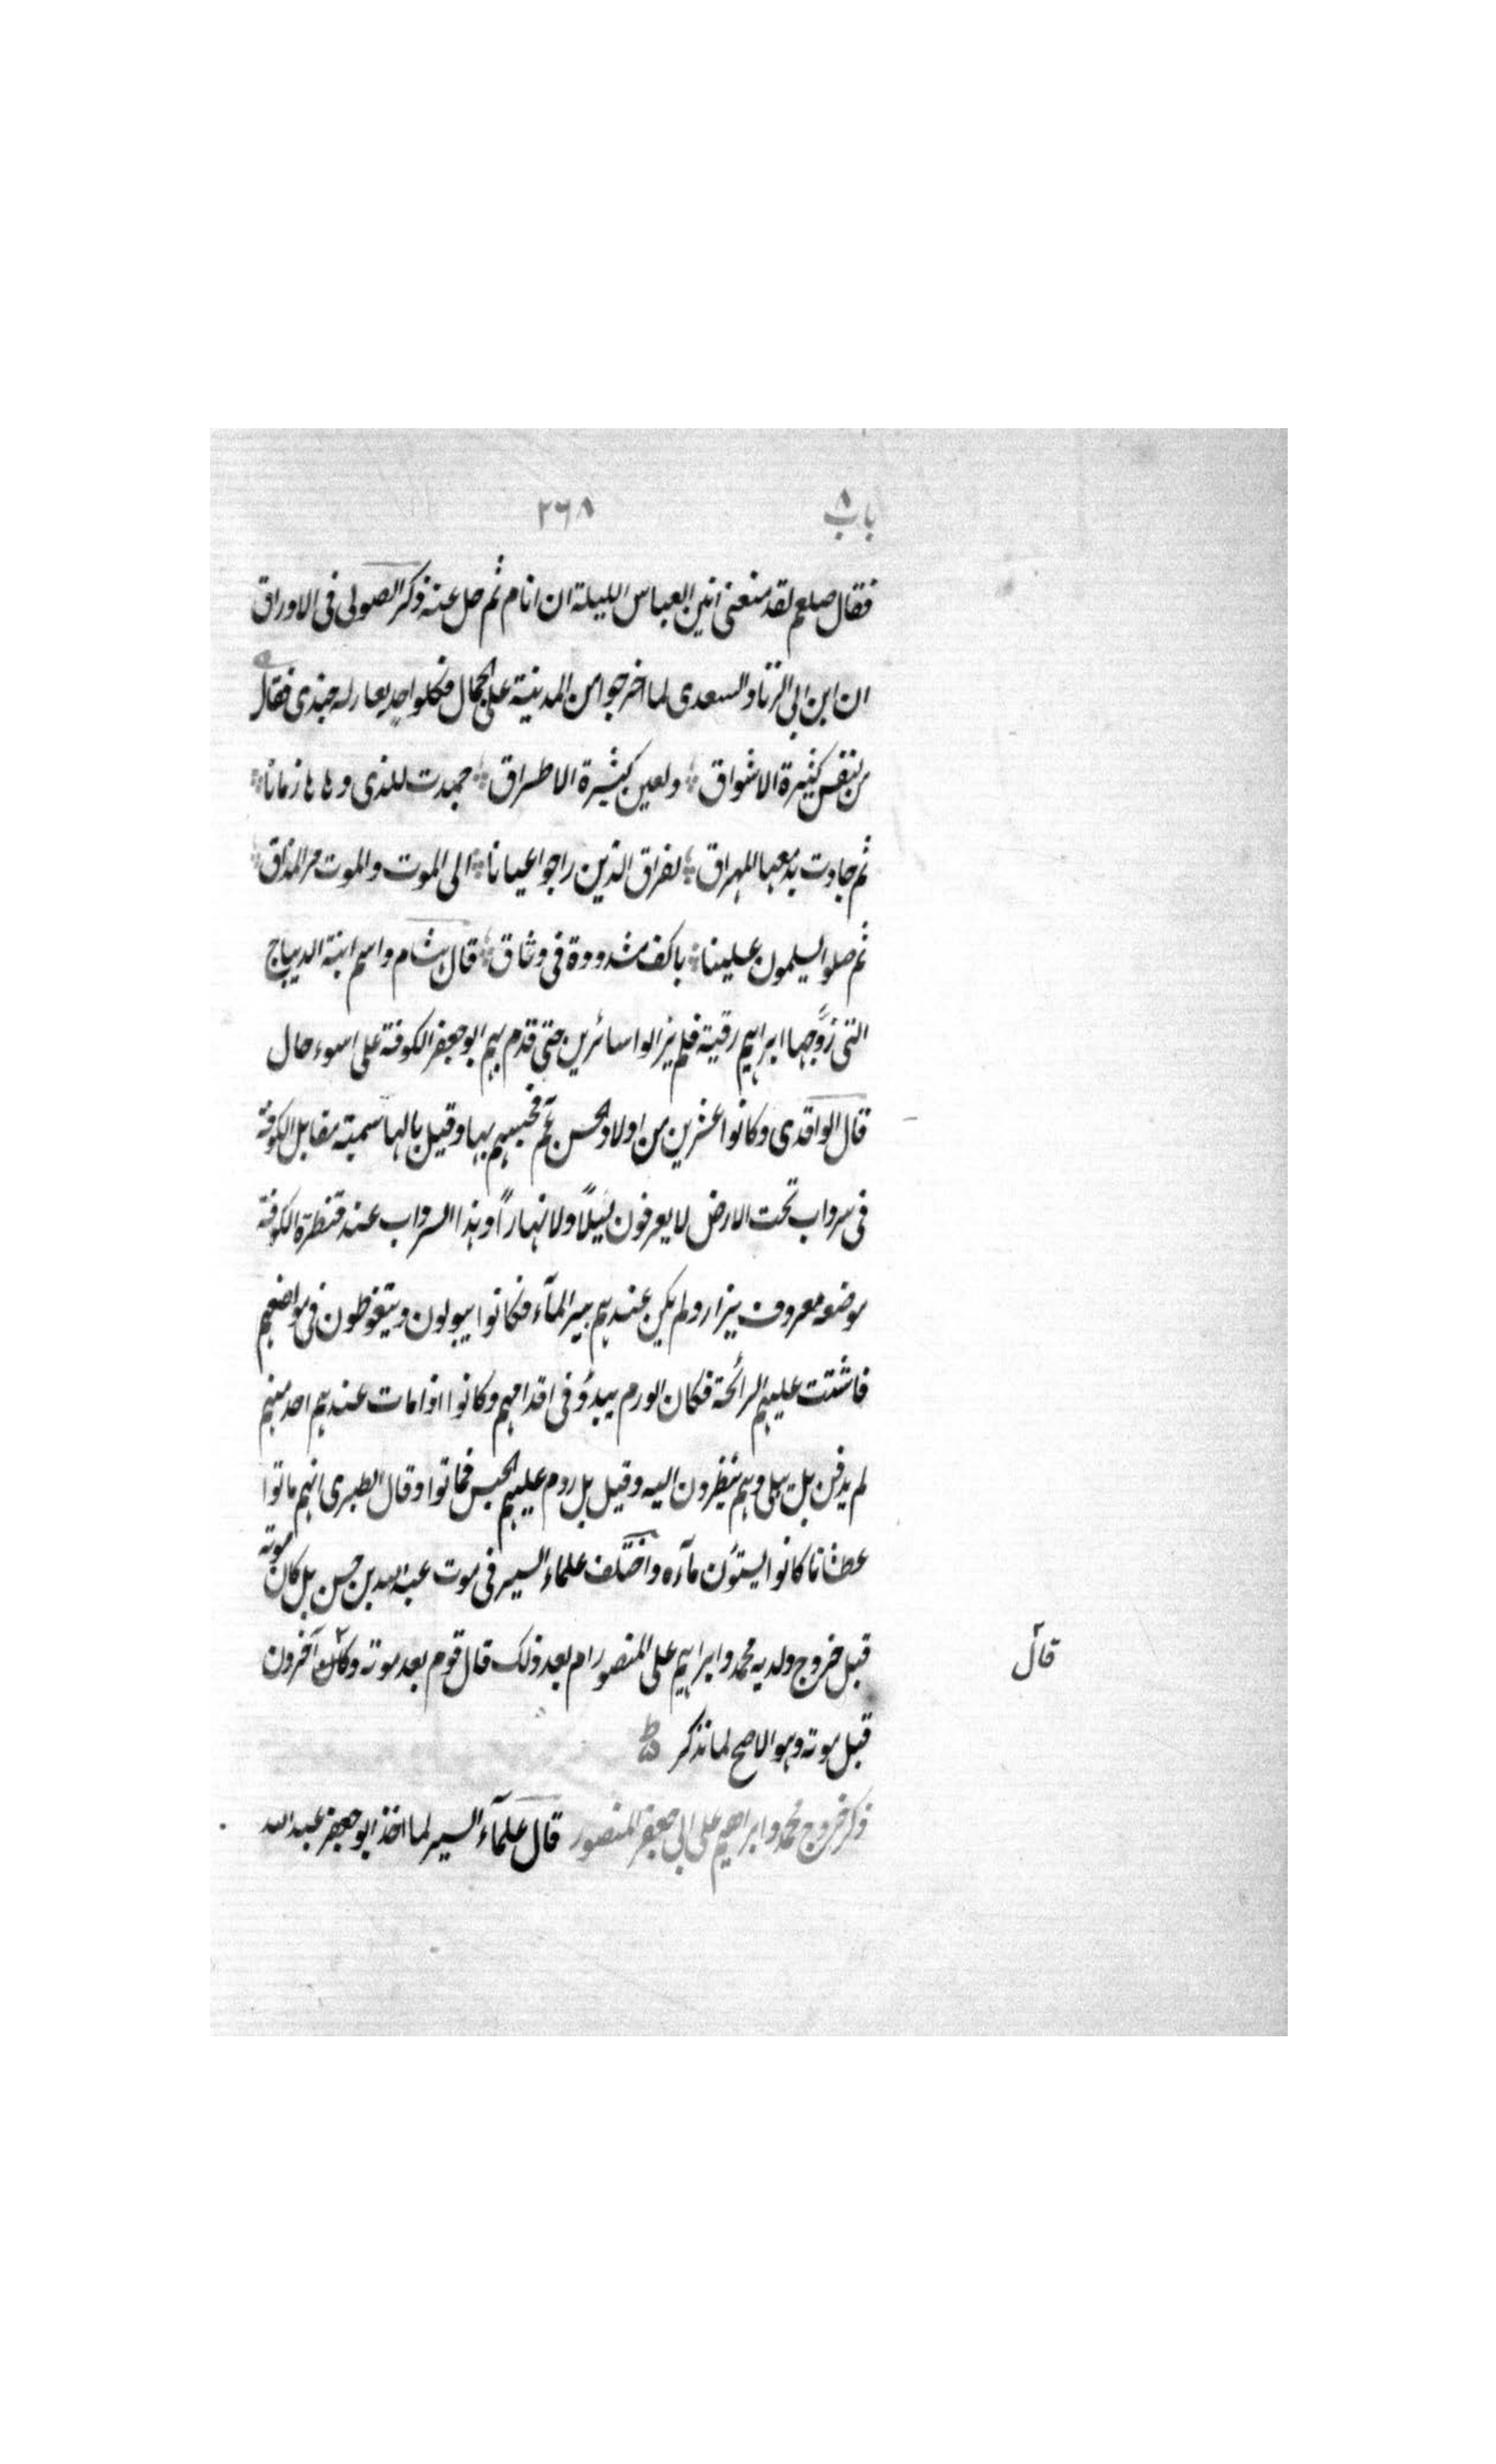 باب ٨ ٢٦٨
فقال صلعم لقد منعنى انين العباس الليلة ان انام ثم حل عنه ذكر الصولى فى الاوراق
ان ابن ابى الزناد السعدى لما اخرجوا من المدينة على الجمال فكلواحد يعادله جندى فقال
من لنفس كثيرة الاشواق ولعين كثيرة الاطراق جمدت للذى دهاها زمانا
ثم جادت بدمعها المهراق لفراق الذين راحوا عيانا الى الموت والموت مر المذاق
ثم صلوا يسلمون علينا باكف مشدودة فى وثاق قال هشام واسم ابنة الديباج
التى زوّجها ابراهيم رقية فلم يزالوا سائرين حتى قدم بهم ابو جعفر الكوفة على اسوء حال
قال الواقدى وكانوا عشرين من اولاد الحسن عم فحبسهم بها وقيل بالهاشمية مقابل الكوفة
فى سرداب تحت الارض لا يعرفون ليلًا ولا نهارًا وهذا السرداب عند قنطرة الكوفة
موضعه معروف يزار ولم يكن عندهم بير الماء فكانوا يبولون ويتغوطون فى مواضعهم
فاشتت عليهم الرائحة فكان الورم يبدؤ فى اقدامهم وكانوا اذا مات عندهم احد منهم
لم يدفن بل يبلى وهم ينظرون اليه وقيل بل ردم عليهم الحبس فماتوا وقال الطبرى انهم ماتوا
عطشانا كانوا ماءه واختلف علماء السير فى موت عبد الله بن حسن بل كان موته
قبل خروج ولديه محمد وابراهيم على المنصور ام بعد ذلك قال قوم بعد موته آخرون
قال
قبل موته وهو الاصح لما نذكر
ذكر خروج محمد وابراهيم على ابى جعفر المنصور قال علماء السير لما اخذ ابو جعفر عبد الله